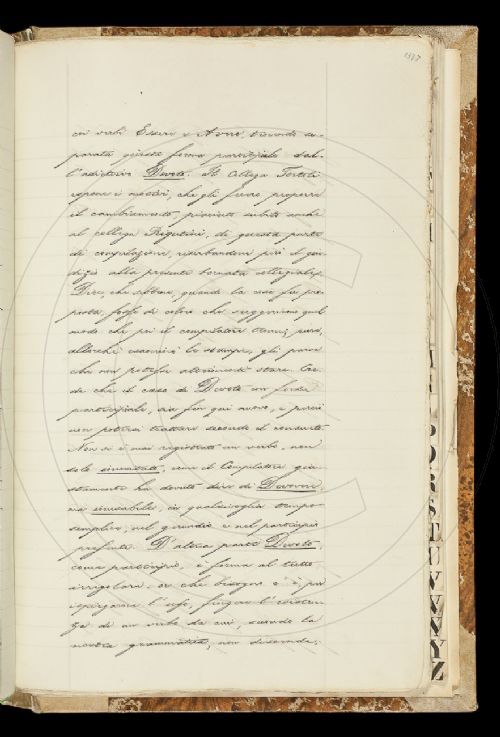 1337
coi verbi Essere e Avere, trovando se-
parata questa forma participiale dal-
l'adiettivo Devoto. Il Collega Tortoli
espone i motivi, che gli fecero proporre
il cambiamento, piaciuto subito anche
al collega Rigutini, di questa parte
di compilazione, riserbandone però il giu-
dizio alla presente tornata collegiale.
Dice, che sebbene, quando la cosa fu pro-
posta, fosse di coloro che suggerirono quel
modo che poi il compilatore tenne; pure,
allorché esaminò le stampe, gli parve
che non potesse altrimenti stare. Cre-
de che il caso di Devoto in forza
participiale, sia fin qui nuovo, e perciò
non potersi trattare secondo il consueto.
Non si è mai registrato un verbo, non
solo inusitato, come il Compilatore giu-
stamente ha dovuto dire di Devovere,
ma inusabile, in qualsivoglia tempo
semplice, nel gerundio e nel participio
presente. D'altra parte Devoto,
come participio, è forma al tutto
irregolare, or che bisogna è, per
ispiegarne l'uso, fingere l'esisten-
za di un verbo da cui, secondo la
nostra grammatica, non discende;
V
W
Y
Z